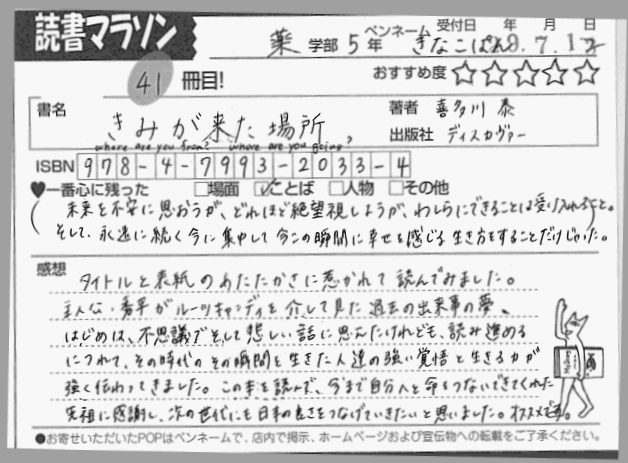 読書マラソン
受付日 年 月 日
薬 学部 5 年 ペンネーム きなこぱん
9.7.12
41 冊目!
おすすめ度 ☆☆☆☆☆
書名 きみが来た場所
where are you from? where are you going?
著者 喜多川 泰
出版社 ディスカヴァー
ISBN 978-4-7993-2033-4
♥一番心に残った □場面 ☑ことば □人物 □その他
(未来を不安に思おうが、どれほど絶望視しようが、わしらにできることは受け入れること。
そして、永遠に続く今に集中して今この瞬間に幸せを感じる生き方をすることだけじゃった。)
感想
タイトルと表紙のあたたかさに惹かれて読んでみました。
主人公・秀平がルーツキャンディを介して見た過去の出来事の夢。
はじめは、不思議でそして悲しい話に思えたけれども、読み進める
につれて、その時代のその瞬間を生きた人達の強い覚悟と生きる力が
強く伝わってきました。この本を読んで、今まで自分へと命をつないできてくれた
先祖に感謝し、次の世代にも日本の良さをつなげていきたいと思いました。オススメです。
●お寄せいただいたPOPはペンネームで、店内で掲示、ホームページおよび宣伝物への転載をご了承ください。